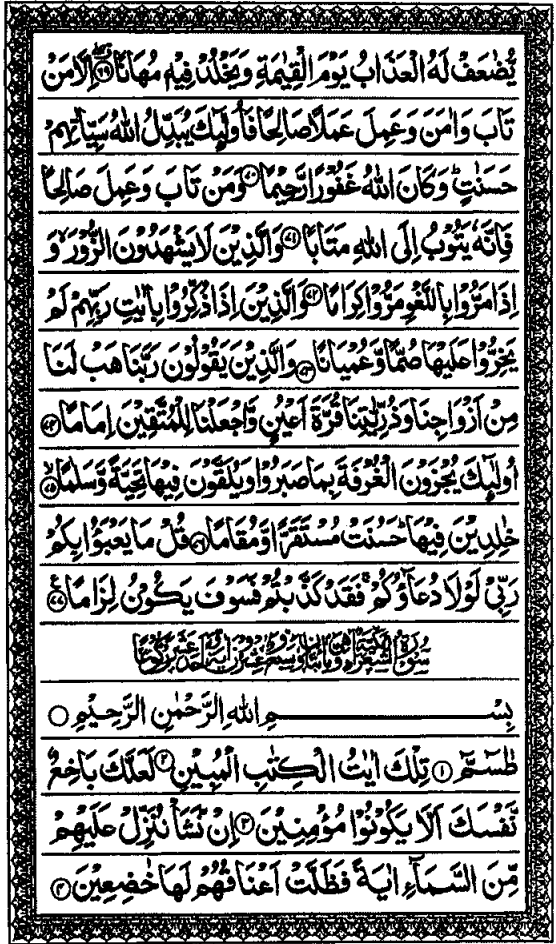 يُّضٰعَفْ لَهُ الْعَذَابُ يَوْمَ الْقِيٰمَةِ وَيَخْلُدْ فِيْهٖ مُهَانًا ﴿٦٩﴾ اِلَّا مَنْ
تَابَ وَاٰمَنَ وَعَمِلَ عَمَلًا صَالِحًا فَاُولٰٓئِكَ يُبَدِّلُ اللّٰهُ سَيِّاٰتِهِمْ
حَسَنٰتٍ ؕ وَكَانَ اللّٰهُ غَفُوْرًا رَّحِيْمًا ﴿٧٠﴾ وَمَنْ تَابَ وَعَمِلَ صَالِحًا
فَاِنَّهٗ يَتُوْبُ اِلَى اللّٰهِ مَتَابًا ﴿٧١﴾ وَالَّذِيْنَ لَا يَشْهَدُوْنَ الزُّوْرَ ۙ وَ
اِذَا مَرُّوْا بِاللَّغْوِ مَرُّوْا كِرَامًا ﴿٧٢﴾ وَالَّذِيْنَ اِذَا ذُكِّرُوْا بِاٰيٰتِ رَبِّهِمْ لَمْ
يَخِرُّوْا عَلَيْهَا صُمًّا وَّعُمْيَانًا ﴿٧٣﴾ وَالَّذِيْنَ يَقُوْلُوْنَ رَبَّنَا هَبْ لَنَا
مِنْ اَزْوَاجِنَا وَذُرِّيّٰتِنَا قُرَّةَ اَعْيُنٍ وَّاجْعَلْنَا لِلْمُتَّقِيْنَ اِمَامًا ﴿٧٤﴾
اُولٰٓئِكَ يُجْزَوْنَ الْغُرْفَةَ بِمَا صَبَرُوْا وَيُلَقَّوْنَ فِيْهَا تَحِيَّةً وَّسَلٰمًا ﴿٧٥﴾ ۙ
خٰلِدِيْنَ فِيْهَا ؕ حَسُنَتْ مُسْتَقَرًّا وَّمُقَامًا ﴿٧٦﴾ قُلْ مَا يَعْبَؤُا بِكُمْ
رَبِّيْ لَوْلَا دُعَآؤُكُمْ ۚ فَقَدْ كَذَّبْتُمْ فَسَوْفَ يَكُوْنُ لِزَامًا ﴿٧٧﴾
سُوْرَةُ الشُّعَرَآءِ مَكِّيَّةٌ
بِسْمِ اللّٰهِ الرَّحْمٰنِ الرَّحِيْمِ
طٰسٓمّٓ ﴿١﴾ تِلْكَ اٰيٰتُ الْكِتٰبِ الْمُبِيْنِ ﴿٢﴾ لَعَلَّكَ بَاخِعٌ
نَّفْسَكَ اَلَّا يَكُوْنُوْا مُؤْمِنِيْنَ ﴿٣﴾ اِنْ نَّشَاْ نُنَزِّلْ عَلَيْهِمْ
مِّنَ السَّمَآءِ اٰيَةً فَظَلَّتْ اَعْنَاقُهُمْ لَهَا خٰضِعِيْنَ ﴿٤﴾